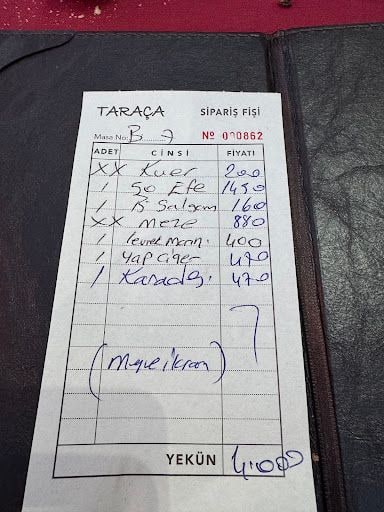 TARAÇA SİPARİŞ FİŞİ
Masa No: B 7 Nº 000862
ADET CİNSİ FİYATI
XX Kuver 200
1 50 Efe 1450
1 B Şalgam 160
XX meze 880
1 levrek marin. 400
1 Yap ciğer 470
1 470
(Meyve ikram)
YEKÜN 4.000